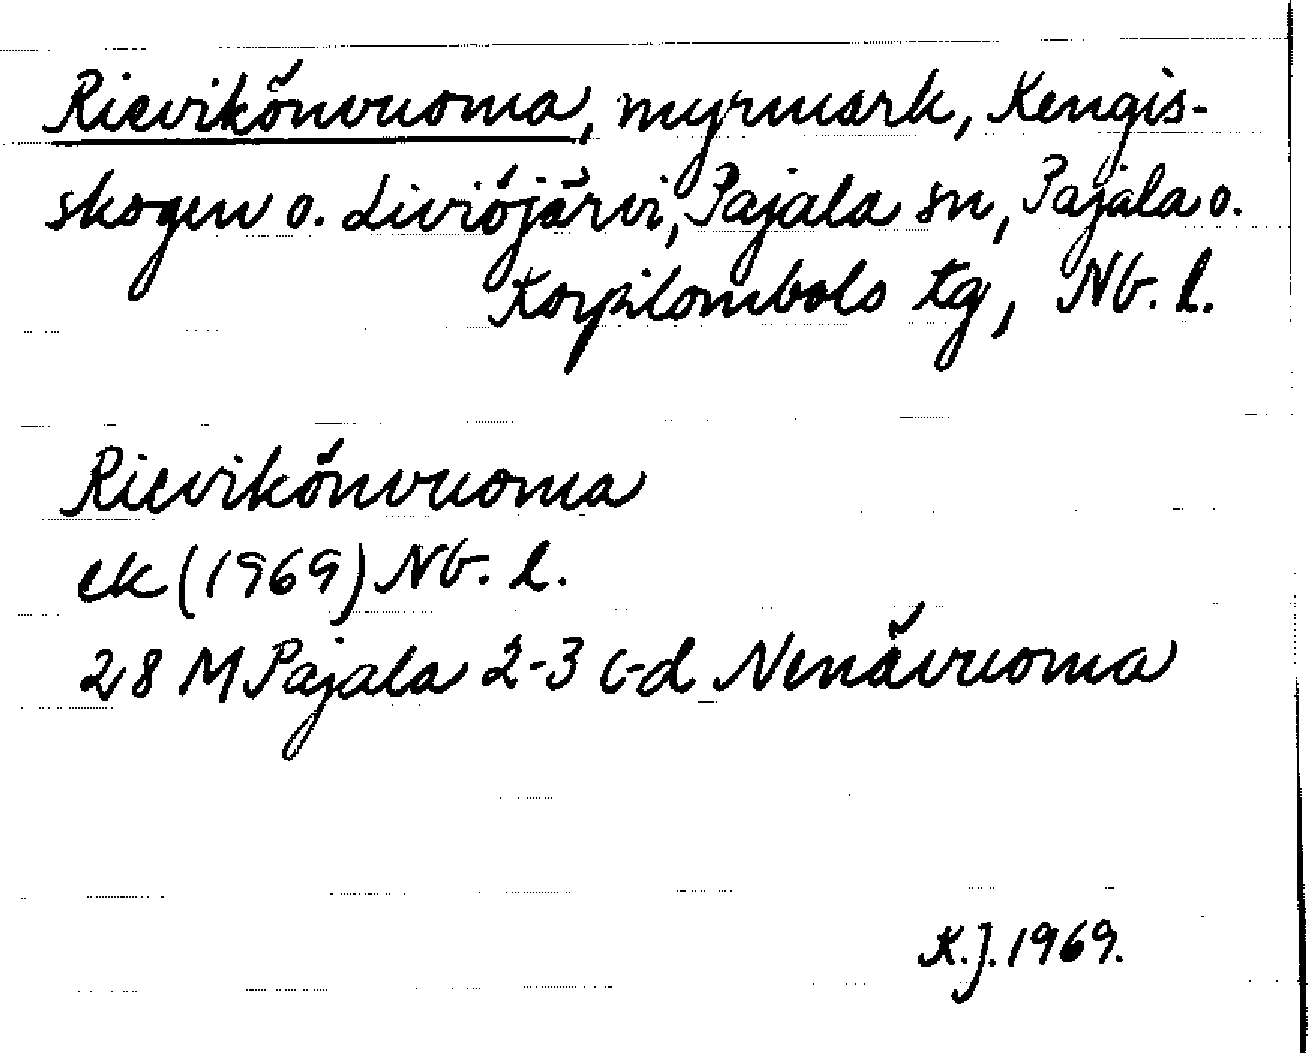 Rievikönvuoma, myrmark, Kengis-
skogen o. Liviöjärvi, Pajala sn, Pajala o.
Korpilombolo tg, Nb. l.
Rievikönvuoma
ek (1969) Nb. l.
28 M Pajala 2-3 c-d Nenävuoma
K.J. 1969.